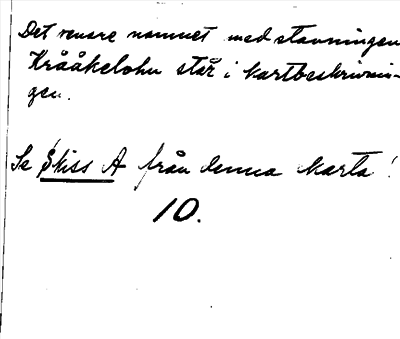 Det senare namnet med stavningen
Krååkelohu står i Kartbeskrivnin-
gen.
Se Skiss A från denna Karta!
10.